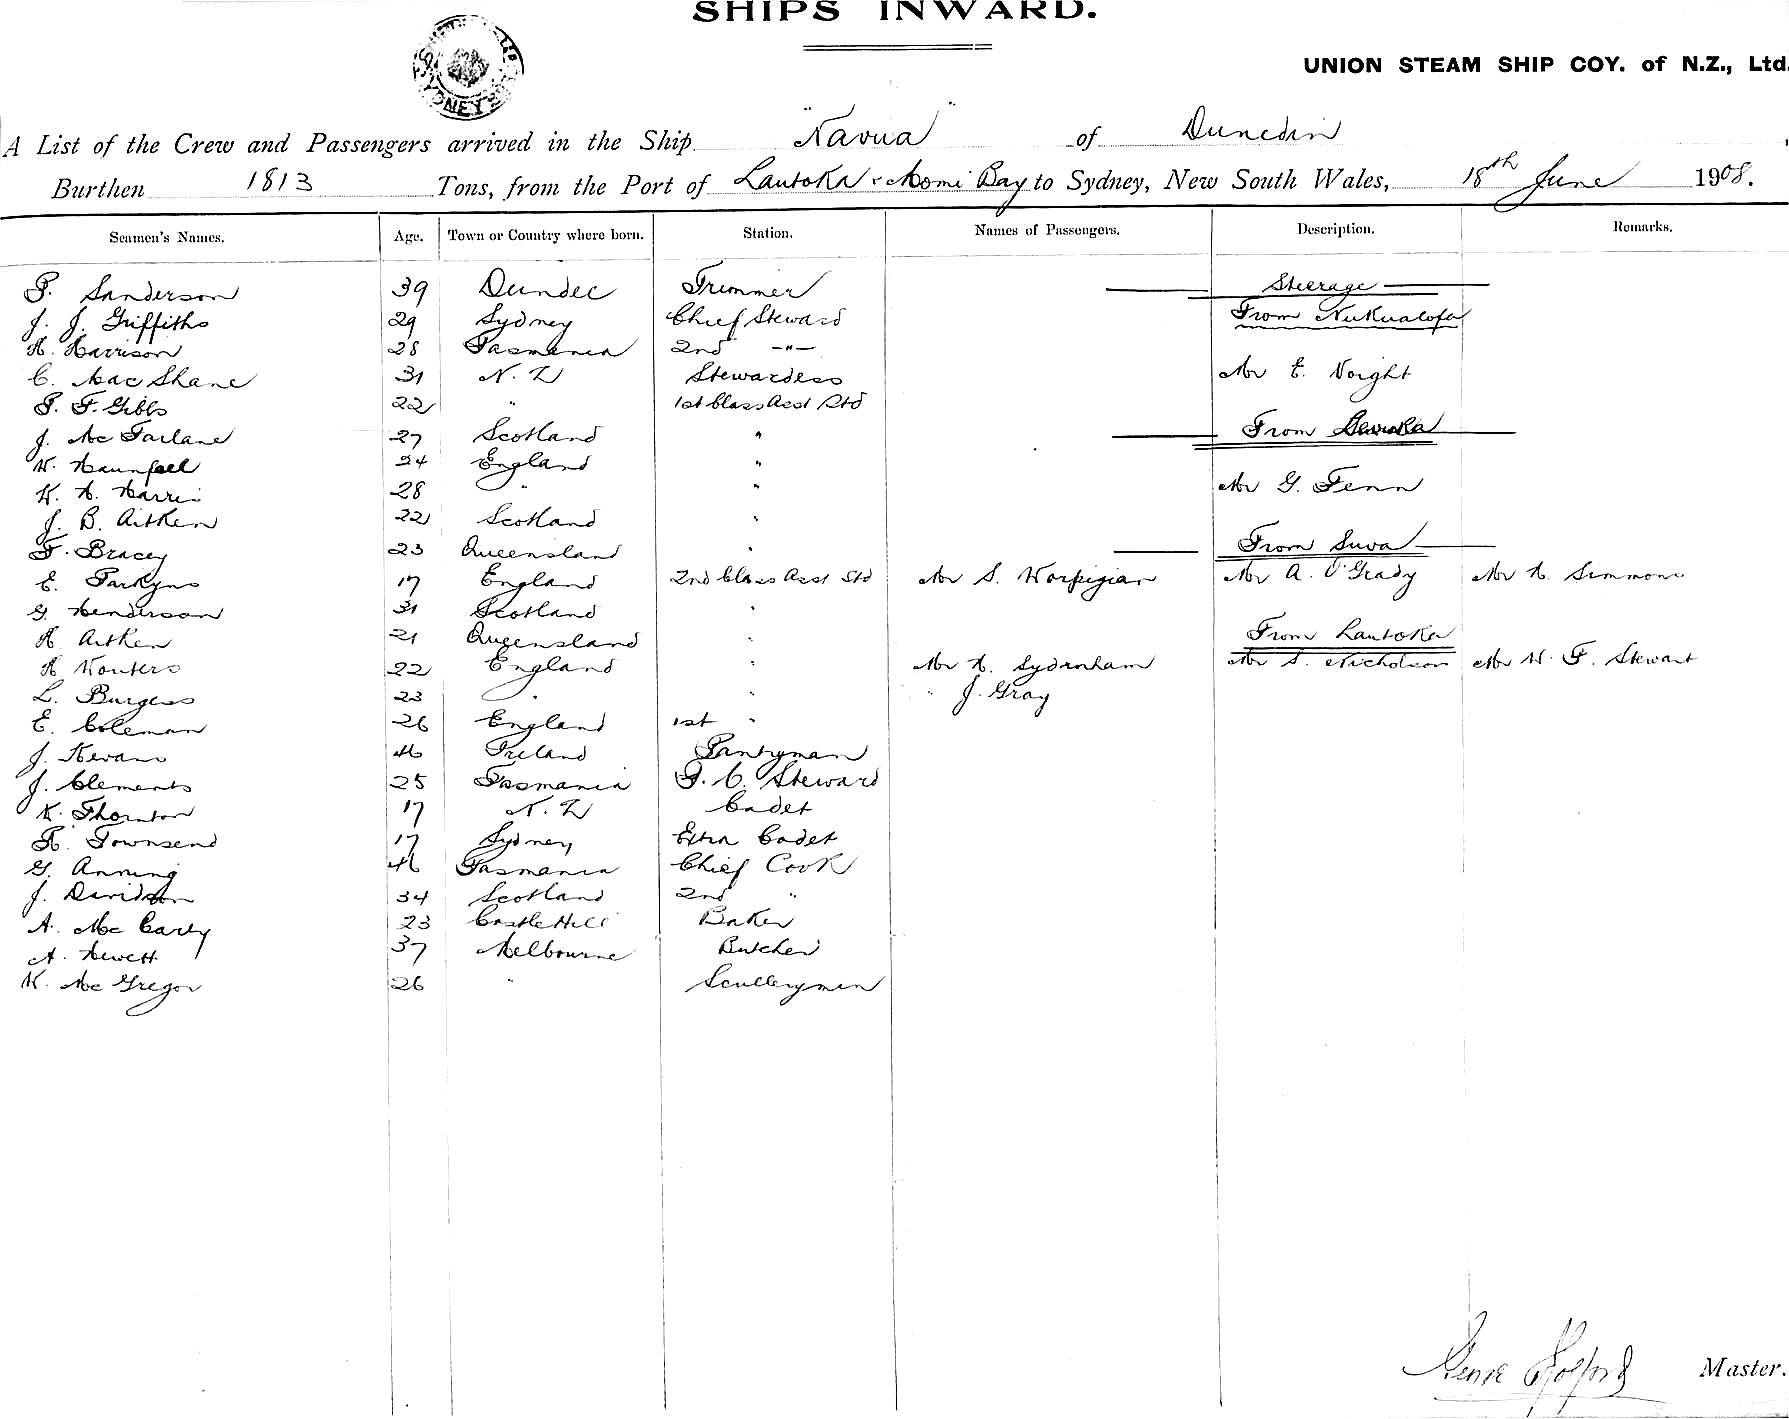 SHIPS INWARD.
UNION STEAM SHIP COY. of N.Z., Ltd.
SYDNEY
A List of the Crew and Passengers arrived in the Ship "Navua" of Dunedin
Burthen 1813 Tons, from the Port of Lautoka & Momi Bay to Sydney, New South Wales, 18th June 1908.
Seamen's Names. Age. Town or Country where born. Station. Names of Passengers. Description. Remarks.
P. Sanderson 39 Dundee Trimmer Steerage
J. J. Griffiths 29 Sydney Chief Steward From Nukualofa
H. Harrison 28 Tasmania 2nd -"-
C. Mac Shane 31 N. Z Stewardess Mr E. Voight
P. F. Gibbs 22 " 1st Class Asst Std
J. Mc Farlane 27 Scotland " From Levuka
W. 24 England "
H. Harris 28 " " Mr G. Fenn
J. B. Aitken 22 Scotland "
F. Bracey 23 Queensland " From Suva
E. Parkyns 17 England 2nd Class Asst Std Mr S. Mr A. O'Grady Mr H. Simmons
G. Henderson 31 Scotland "
H Aitken 21 Queensland " From Lautoka
H Wouters 22 England " Mr H. Sydenham Mr S. Nicholson Mr W. F. Stewart
L. Burgess 23 " " " J. Gray
E. Coleman 26 England 1st "
J. Kevans 46 Ireland Pantryman
J. Clements 25 Tasmania F. C. Steward
K. Thornton 17 N. Z Cadet
H. Townsend 17 Sydney Extra Cadet
G. Anning 46 Tasmania Chief Cook
J. Davidson 34 Scotland 2nd "
A. Mc Carty 23 Castle Hill Baker
A. Hewett 37 Melbourne Butcher
K. Mc Gregor 26 " Sculleryman
Holford Master.